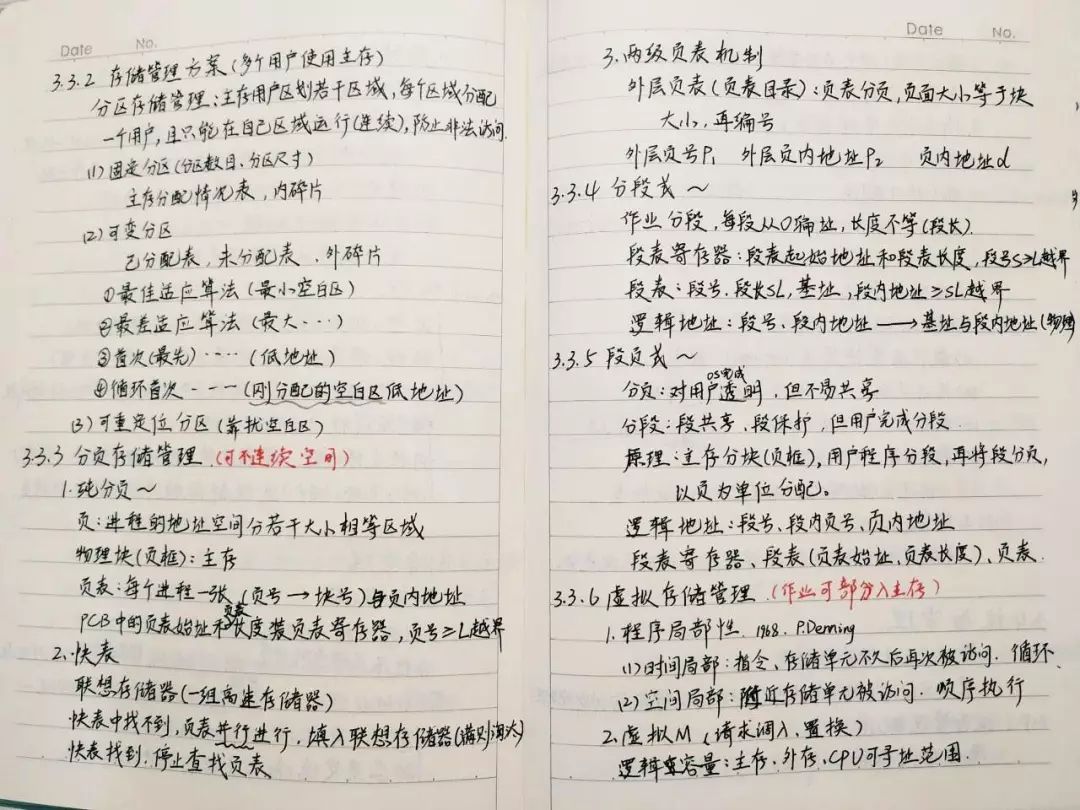 Date No.
3.3.2 存储管理方案(多个用户使用主存)
分区存储管理:主存用户区划若干区域,每个区域分配
一个用户,且只能在自己区域运行(连续),防止非法访问.
(1)固定分区(分区数目、分区尺寸)
主存分配情况表,内碎片
(2)可变分区
已分配表,未分配表、外碎片
①最佳适应算法(最小空白区)
②最差适应算法(最大···)
③首次(最先)····(低地址)
④循环首次----(刚分配的空白区低地址)
(3)可重定位分区(靠拢空白区)
3.3.3 分页存储管理(可不连续空间)
1.纯分页~
页:进程的地址空间分若干大小相等区域
物理块(页框):主存
页表:每个进程一张(页号→块号)每页内地址
PCB中的页表始址和页表长度装页表寄存器,页号≥L越界
2.快表
联想存储器(一组高速存储器)
快表中找不到,页表并行进行,填入联想存储器(满则淘汰)
快表找到,停止查找页表
Date No.
3.两级页表机制
外层页表(页表目录):页表分页,页面大小等于块
大小,再编号
外层页号P1 外层页内地址P2 页内地址d
3.3.4 分段式~
作业分段,每段从0编址,长度不等(段长).
段表寄存器:段表起始地址和段表长度,段号S≥L越界
段表:段号、段长SL,基址,段内地址≥SL越界
逻辑地址:段号、段内地址→基址与段内地址(物理)
3.3.5 段页式~
OS完成
分页:对用户透明,但不易共享
分段:段共享、段保护,但用户完成分段
原理:主存分块(页框),用户程序分段,再将段分页,
以页为单位分配。
逻辑地址:段号、段内页号、页内地址
段表寄存器、段表(页表始址,页表长度)、页表.
3.3.6 虚拟存储管理(作业可部分入主存)
1.程序局部性. 1968. P.Denning
(1)时间局部:指令、存储单元不久后再次被访问. 循环.
(2)空间局部:附近存储单元被访问. 顺序执行
2.虚拟M(请求调入、置换)
逻辑容量:主存、外存、CPU可寻址范围.